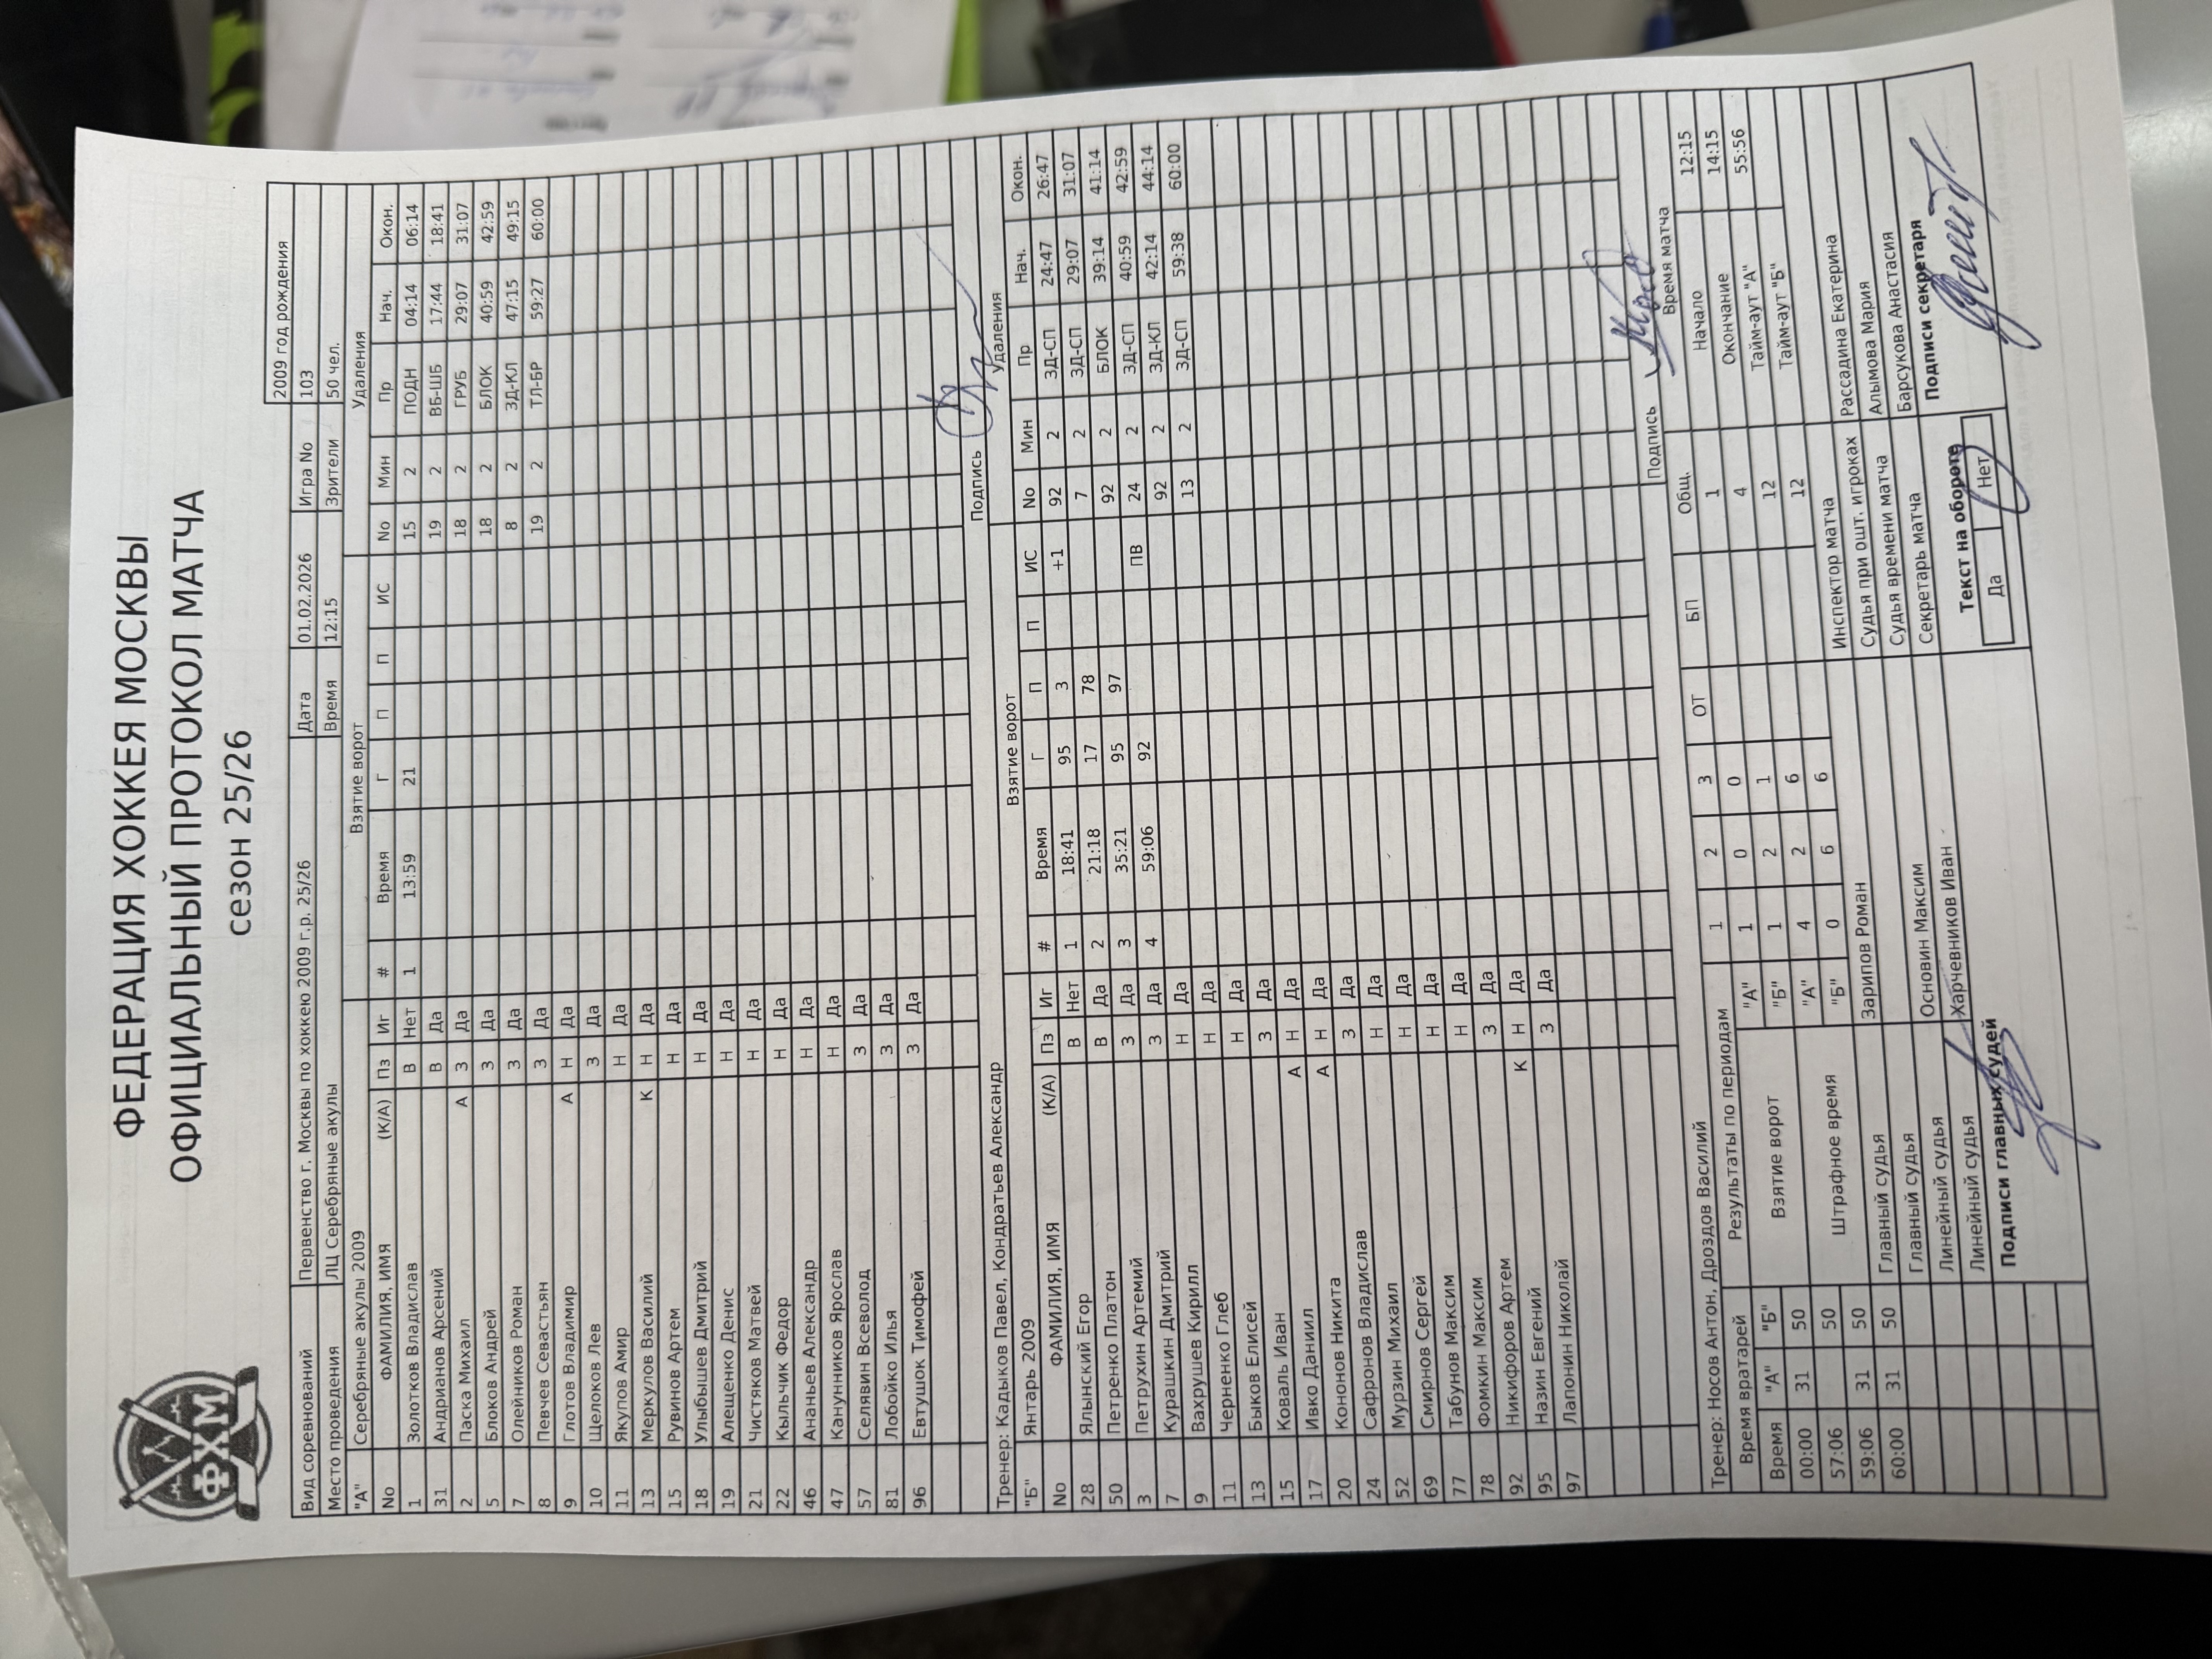 ФЕДЕРАЦИЯ ХОККЕЯ МОСКВЫ
ОФИЦИАЛЬНЫЙ ПРОТОКОЛ МАТЧА
сезон 25/26
ФХМ
2009 год рождения
Вид соревнований Первенство г. Москвы по хоккею 2009 г.р. 25/26 Дата 01.02.2026 Игра No 103
Место проведения ЛЦ Серебряные акулы Время 12:15 Зрители 50 чел.
"А" Серебряные акулы 2009 Взятие ворот Удаления
No ФАМИЛИЯ, ИМЯ (К/А) Пз Иг # Время Г П П ИС No Мин Пр Нач. Окон.
1 Золотков Владислав В Нет 1 13:59 21 15 2 ПОДН 04:14 06:14
31 Андрианов Арсений В Да 19 2 ВБ-ШБ 17:44 18:41
2 Паска Михаил А З Да 18 2 ГРУБ 29:07 31:07
5 Блоков Андрей З Да 18 2 БЛОК 40:59 42:59
7 Олейников Роман З Да 8 2 ЗД-КЛ 47:15 49:15
8 Певчев Севастьян З Да 19 2 ТЛ-БР 59:27 60:00
9 Глотов Владимир А Н Да
10 Щелоков Лев З Да
11 Якупов Амир Н Да
13 Меркулов Василий К Н Да
15 Рувинов Артем Н Да
18 Улыбышев Дмитрий Н Да
19 Алещенко Денис Н Да
21 Чистяков Матвей Н Да
22 Кыльчик Федор Н Да
46 Ананьев Александр Н Да
47 Канунников Ярослав Н Да
57 Селявин Всеволод З Да
81 Лобойко Илья З Да
96 Евтушок Тимофей З Да
Тренер: Кадыков Павел, Кондратьев Александр Подпись
"Б" Янтарь 2009 Взятие ворот Удаления
No ФАМИЛИЯ, ИМЯ (К/А) Пз Иг # Время Г П П ИС No Мин Пр Нач. Окон.
28 Ялынский Егор В Нет 1 18:41 95 3 +1 92 2 ЗД-СП 24:47 26:47
50 Петренко Платон В Да 2 21:18 17 78 7 2 ЗД-СП 29:07 31:07
3 Петрухин Артемий З Да 3 35:21 95 97 92 2 БЛОК 39:14 41:14
7 Курашкин Дмитрий З Да 4 59:06 92 ПВ 24 2 ЗД-СП 40:59 42:59
9 Вахрушев Кирилл Н Да 92 2 ЗД-КЛ 42:14 44:14
11 Черненко Глеб Н Да 13 2 ЗД-СП 59:38 60:00
13 Быков Елисей Н Да
15 Коваль Иван З Да
17 Ивко Даниил А Н Да
20 Кононов Никита А Н Да
24 Сафронов Владислав З Да
52 Мурзин Михаил Н Да
69 Смирнов Сергей Н Да
77 Табунов Максим Н Да
78 Фомкин Максим Н Да
92 Никифоров Артем З Да
95 Назин Евгений К Н Да
97 Лапонин Николай З Да
Тренер: Носов Антон, Дроздов Василий Подпись
Время вратарей Результаты по периодам 1 2 3 ОТ БП Общ. Время матча
Время "А" "Б" Взятие ворот "А" 1 0 0 1 Начало 12:15
00:00 31 50 "Б" 1 2 1 4 Окончание 14:15
57:06 50 Штрафное время "А" 4 2 6 12 Тайм-аут "А" 55:56
59:06 31 50 "Б" 0 6 6 12 Тайм-аут "Б"
60:00 31 50
Главный судья Зарипов Роман Инспектор матча Рассадина Екатерина
Главный судья Судья при ошт. игроках Алымова Мария
Линейный судья Основин Максим Судья времени матча Барсукова Анастасия
Линейный судья Харчевников Иван Секретарь матча
Подписи главных судей Текст на обороте Подписи секретаря
Да Нет